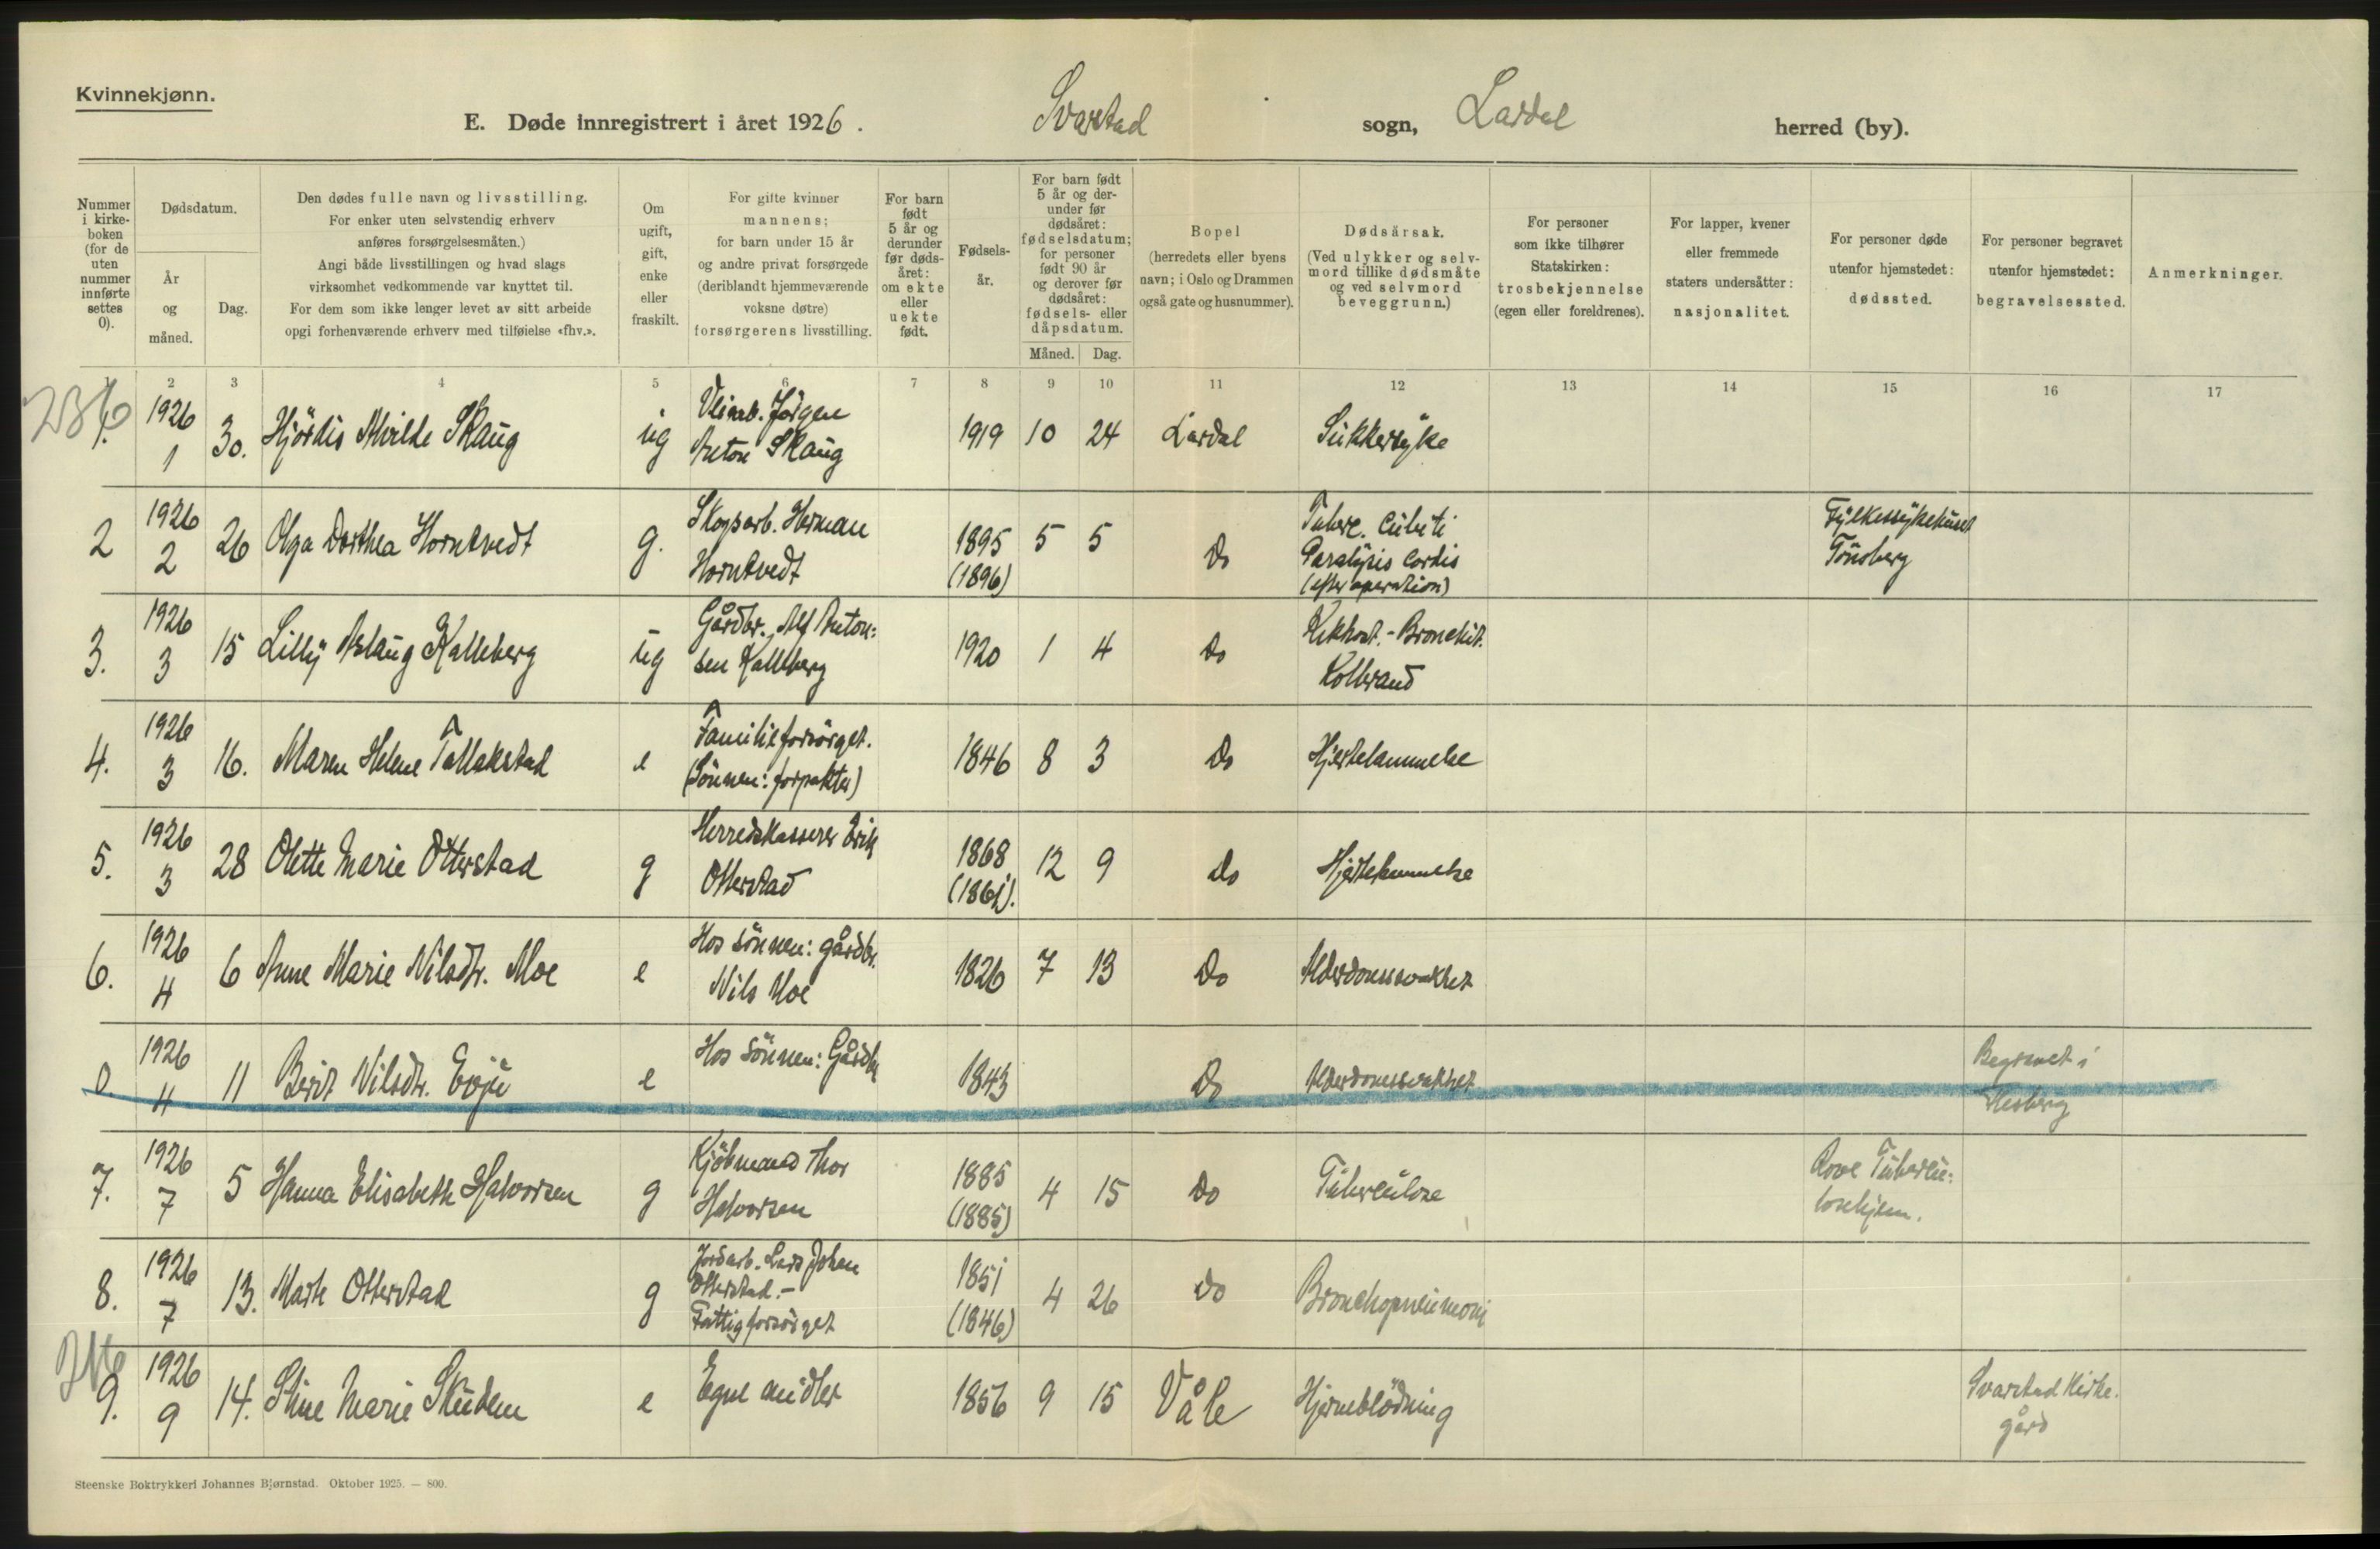 Kvinnekjønn.
E. Døde innregistrert i året 1926. Svarstad sogn, Lardal herred (by).
Nummer i kirkeboken (for de uten nummer innførte settes 0).
Dødsdatum.
År og måned.
Dag.
Den dødes fulle navn og livsstilling.
For enker uten selvstendig erhverv
anføres forsørgelsesmåten.)
Angi både livsstillingen og hvad slags
virksomhet vedkommende var knyttet til.
For dem som ikke lenger levet av sitt arbeide
opgi forhenværende erhverv med tilføielse «fhv.».
Om ugift, gift, enke eller fraskilt.
For gifte kvinner
mannens;
for barn under 15 år
og andre privat forsørgede
(deriblandt hjemmeværende
voksne døtre)
forsørgerens livsstilling.
For barn født 5 år og derunder før dødsåret: om ekte eller uekte født.
Fødselsår.
For barn født 5 år og derunder før dødsåret: fødselsdatum; for personer født 90 år og derover før dødsåret: fødsels- eller dåpsdatum.
Måned. Dag.
Bopel
(herredets eller byens
navn; i Oslo og Drammen
også gate og husnummer).
Dødsårsak.
(Ved ulykker og selv-
mord tillike dødsmåte
og ved selvmord
beveggrunn.)
For personer
som ikke tilhører
Statskirken:
trosbekjennelse
(egen eller foreldrenes).
For lapper, kvener
eller fremmede
staters undersåtter:
nasjonalitet.
For personer døde
utenfor hjemstedet:
dødssted.
For personer begravet
utenfor hjemstedet:
begravelsessted.
Anmerkninger.
1 2 3 4 5 6 7 8 9 10 11 12 13 14 15 16 17
1. 1926 1 30. Hjördis Alvilde Skaug ug Jörgen Anton Skaug 1919 10 24 Lardal Sukkersyke
2 1926 2 26 Olga Dorthea Horntvedt g. Skogsarb. Herman Horntvedt 1895 (1896) 5 5 Do Tuberc. cubiti Paralysis cordis (efter operation) Fylkessykehuset Tönsberg
3. 1926 3 15 Lilly Aslaug Kalleberg ug Gårdbr. Alf Antonsen Kalleberg 1920 1 4 Do Kikhost.-Bronchit. Kolbrand
4. 1926 3 16. Maren Helene Tallakstad e Familieforsörget. (Sönnen: forpakter) 1846 8 3 Do Hjertelammelse
5. 1926 3 28 Olette Marie Otterstad g Herredskasserer Erik Otterstad 1868 (1861). 12 9 do Hjertelammelse
6. 1926 4 6 Anne Marie Nilsdtr. Moe e Hos sönnen: gårdbr. Nils Moe 1826 7 13 Do Alderdomssvakhet
0. 1926 4 11 Berit Nilsdtr. Evju e Hos sönnen: Gårdbr 1843 Do Alderdomssvakhet Begravet i Hesberg
7. 1926 7 5 Hanna Elisabeth Halvorsen g Kjöbmand Thor Halvorsen 1885 (1885) 4 15 Do Tuberculose Rove Tuberculosehjem.
8. 1926 7 13. Marte Otterstad g Jordarb. Lars Johan Otterstad.- Fattigforsörget 1851 (1846) 4 26 Do Bronchopneumoni
9. 1926 9 14. Stine Marie Skudem e Egne midler 1856 9 15 Våle Hjerneblödning Svarstad Kirkegård
Steenske Boktrykkeri Johannes Bjørnstad. Oktober 1925. — 800.